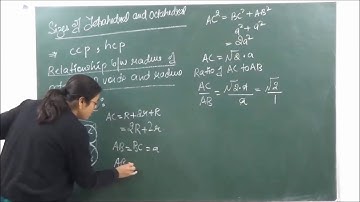 Sizes of Tetrahedral and Octahedral
→ ccp, hcp
Relationship b/w radius of
voids and radius
AC = R+2r+R
= 2R+2r
AB = BC = a
AB
AC² = BC² + AB²
a² + a²
= 2a²
AC = √2 · a
Ratio of AC to AB
AC/AB = √2·a/a = √2/1